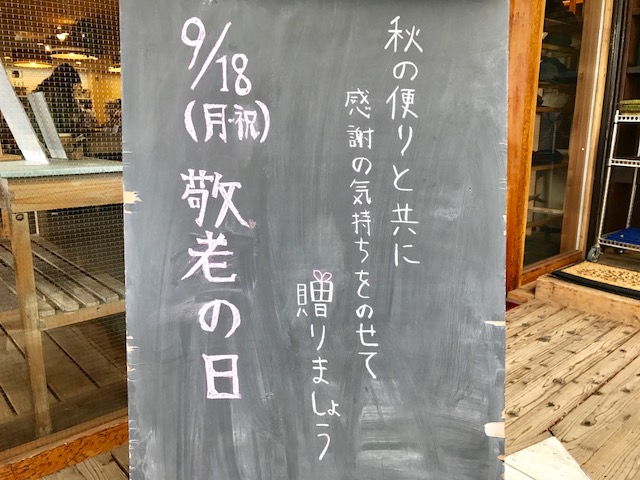 秋の便りと共に
感謝の気持ちをのせて
贈りましょう
9/18
(月・祝)
敬老の日